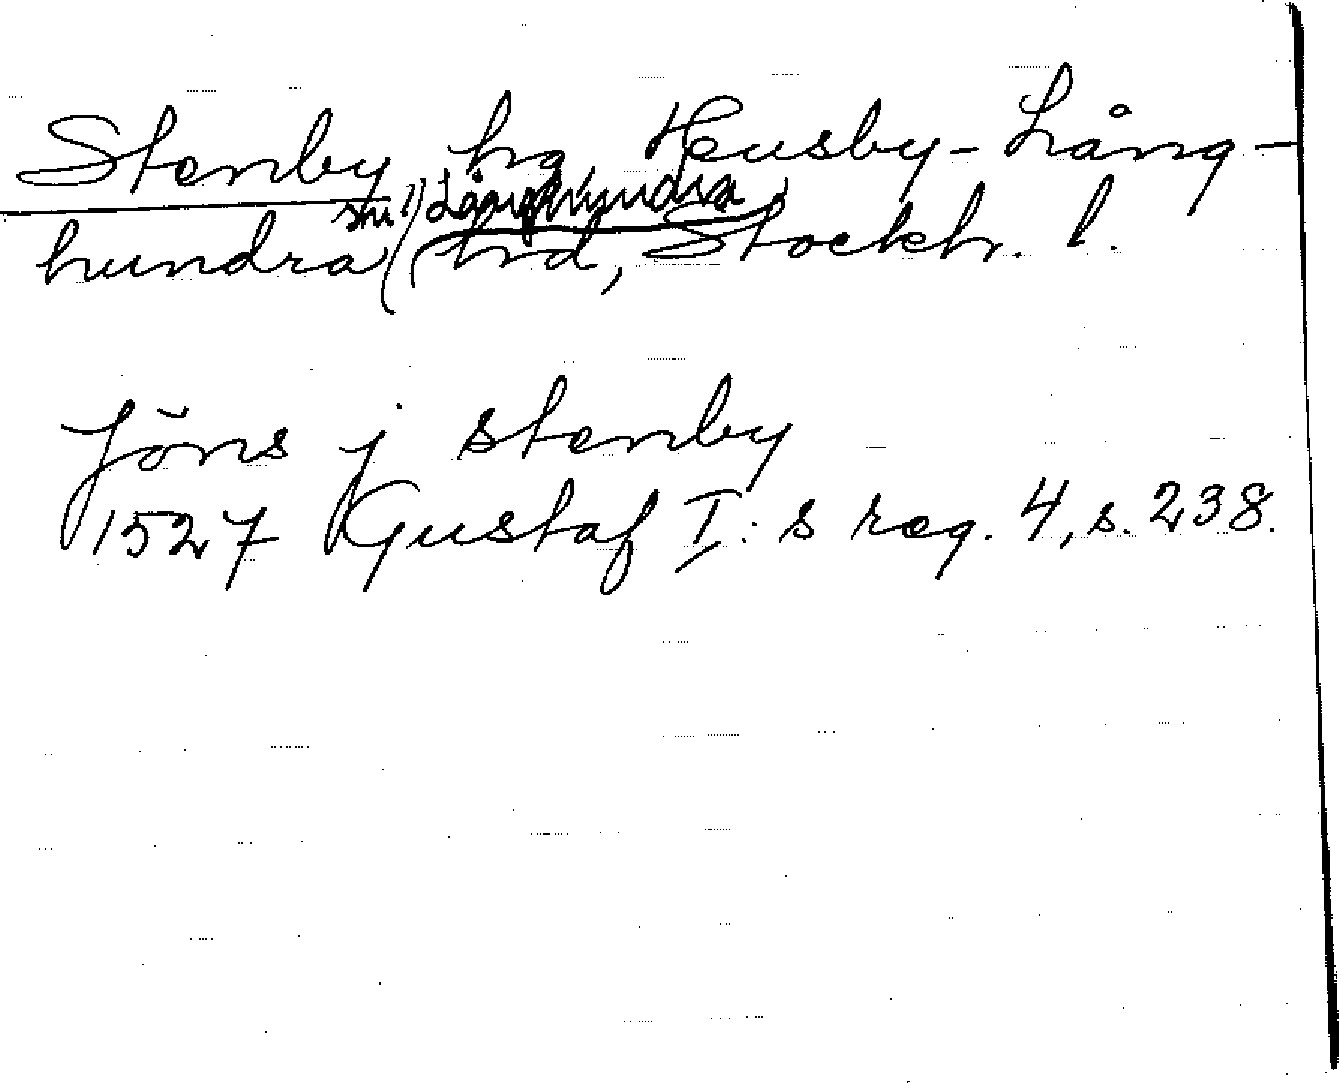 Stenby hg, Husby-Lång-
sn Långhundra
hundra hd, Stockh. l.
Jöns j stenby
1527 Gustaf I:s reg. 4, s. 238.